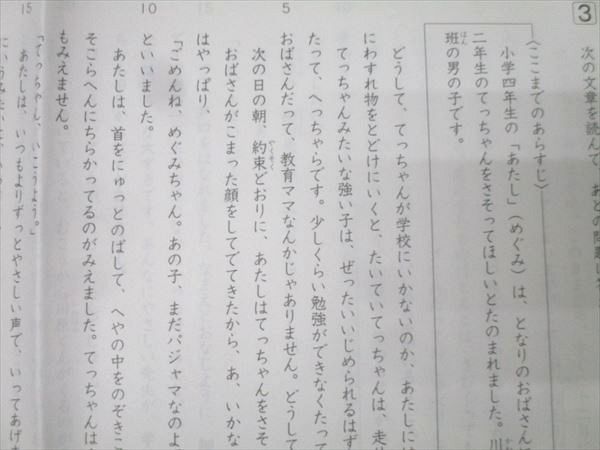 3
次の文章を読んで、あとの問題に
〈ここまでのあらすじ〉
小学四年生の「あたし」（めぐみ）は、となりのおばさんに
二年生のてっちゃんをさそってほしいとたのまれました。川
班の男の子です。
はん
どうして、てっちゃんが学校にいかないのか、あたしには
にわすれ物をとどけにいくと、たいていてっちゃんは、走
てっちゃんみたいな強い子は、ぜったいいじめられるはず
たって、へっちゃらです。少しくらい勉強ができなくたって
5
おばさんだって、教育ママなんかじゃありません。どうして
次の日の朝、約束どおりに、あたしはてっちゃんをさそ
やくそく
おばさんがこまった顔をしてでてきたから、あ、いかな
はやっぱり、
「ごめんね、めぐみちゃん。あの子、まだパジャマなのよ
10
といいました。
あたしは、首をにゅっとのばして、へやの中をのぞきこ
そこらへんにちらかってるのがみえました。てっちゃんは
もみえません。
「てっちゃん、いこうよう。」
15
あたしは、いつもよりずっとやさしい声で、いってあげ